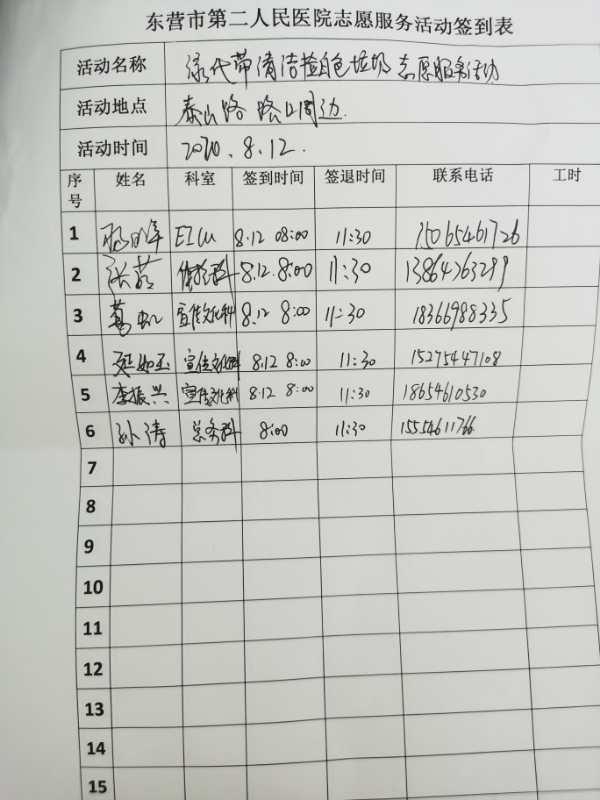 东营市第二人民医院志愿服务活动签到表
活动名称 绿化带清洁捡白色垃圾志愿服务活动
活动地点 泰山路 路口周边
活动时间 2020.8.12.
序号 姓名 科室 签到时间 签退时间 联系电话 工时
1 EICU 8.12 08:00 11:30 15065461726
2 8.12. 8:00 11:30 13864763299
3 葛虹 宣传文化科 8.12 8:00 11:30 18366988335
4 延如玉 宣传文化科 8.12 8:00 11:30 15275447108
5 李振兴 宣传文化科 8.12 8:00 11:30 18654610530
6 孙涛 总务科 8:00 11:30 15554611766
7
8
9
10
11
12
13
14
15